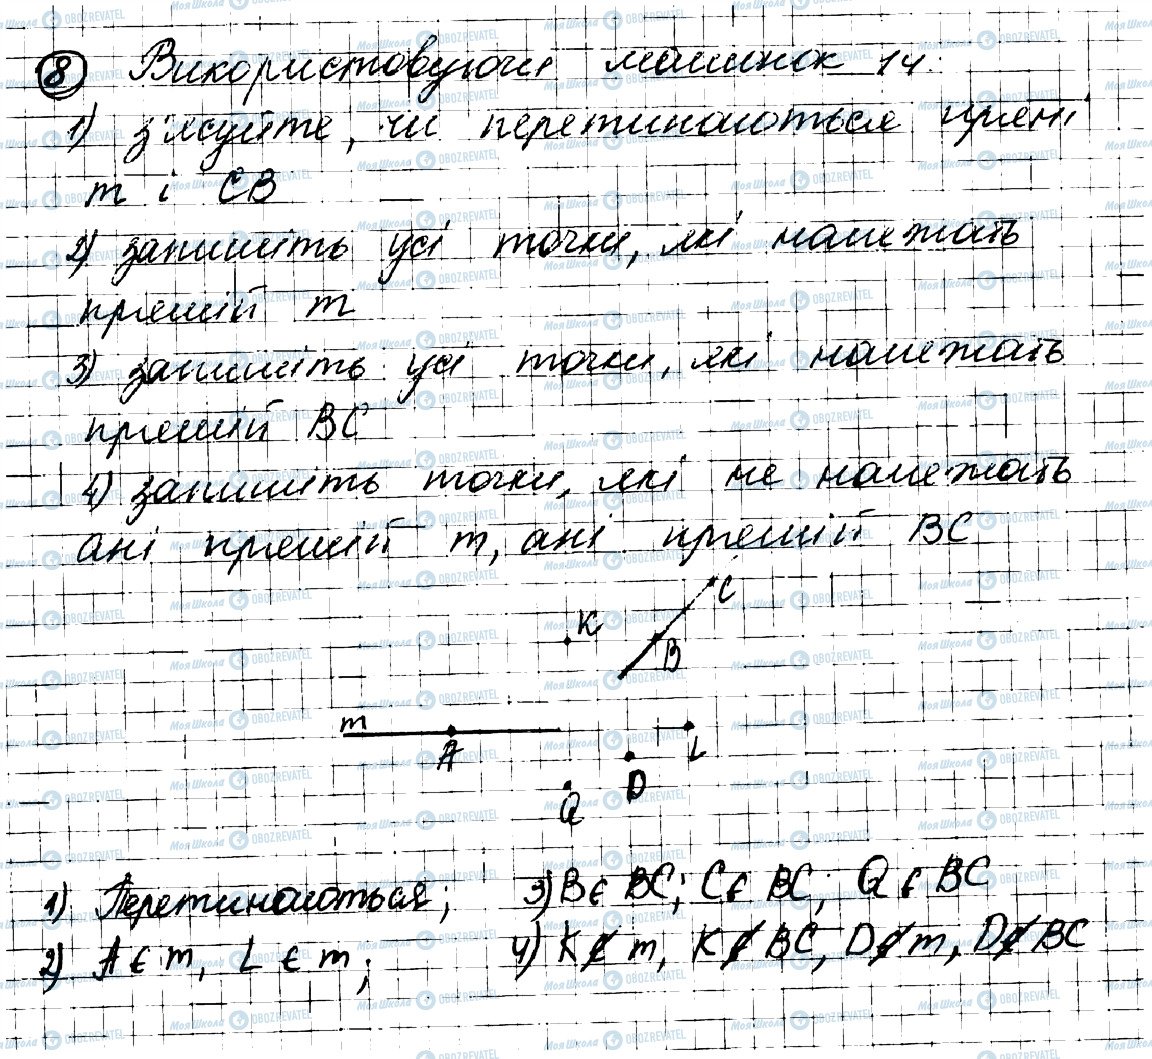 8 Використовуючи малюнок 14:
1) з'ясуйте, чи перетинаються прямі
m і CB
2) запишіть усі точки, які належать
прямій m
3) запишіть усі точки, які належать
прямій BC
4) запишіть точки, які не належать
ані прямій m, ані прямій BC
C
K
B
m
A
L
D
Q
1) Перетинаються; 3) B ∈ BC; C ∈ BC; Q ∈ BC
2) A ∈ m, L ∈ m; 4) K ∉ m, K ∉ BC, D ∉ m, D ∉ BC